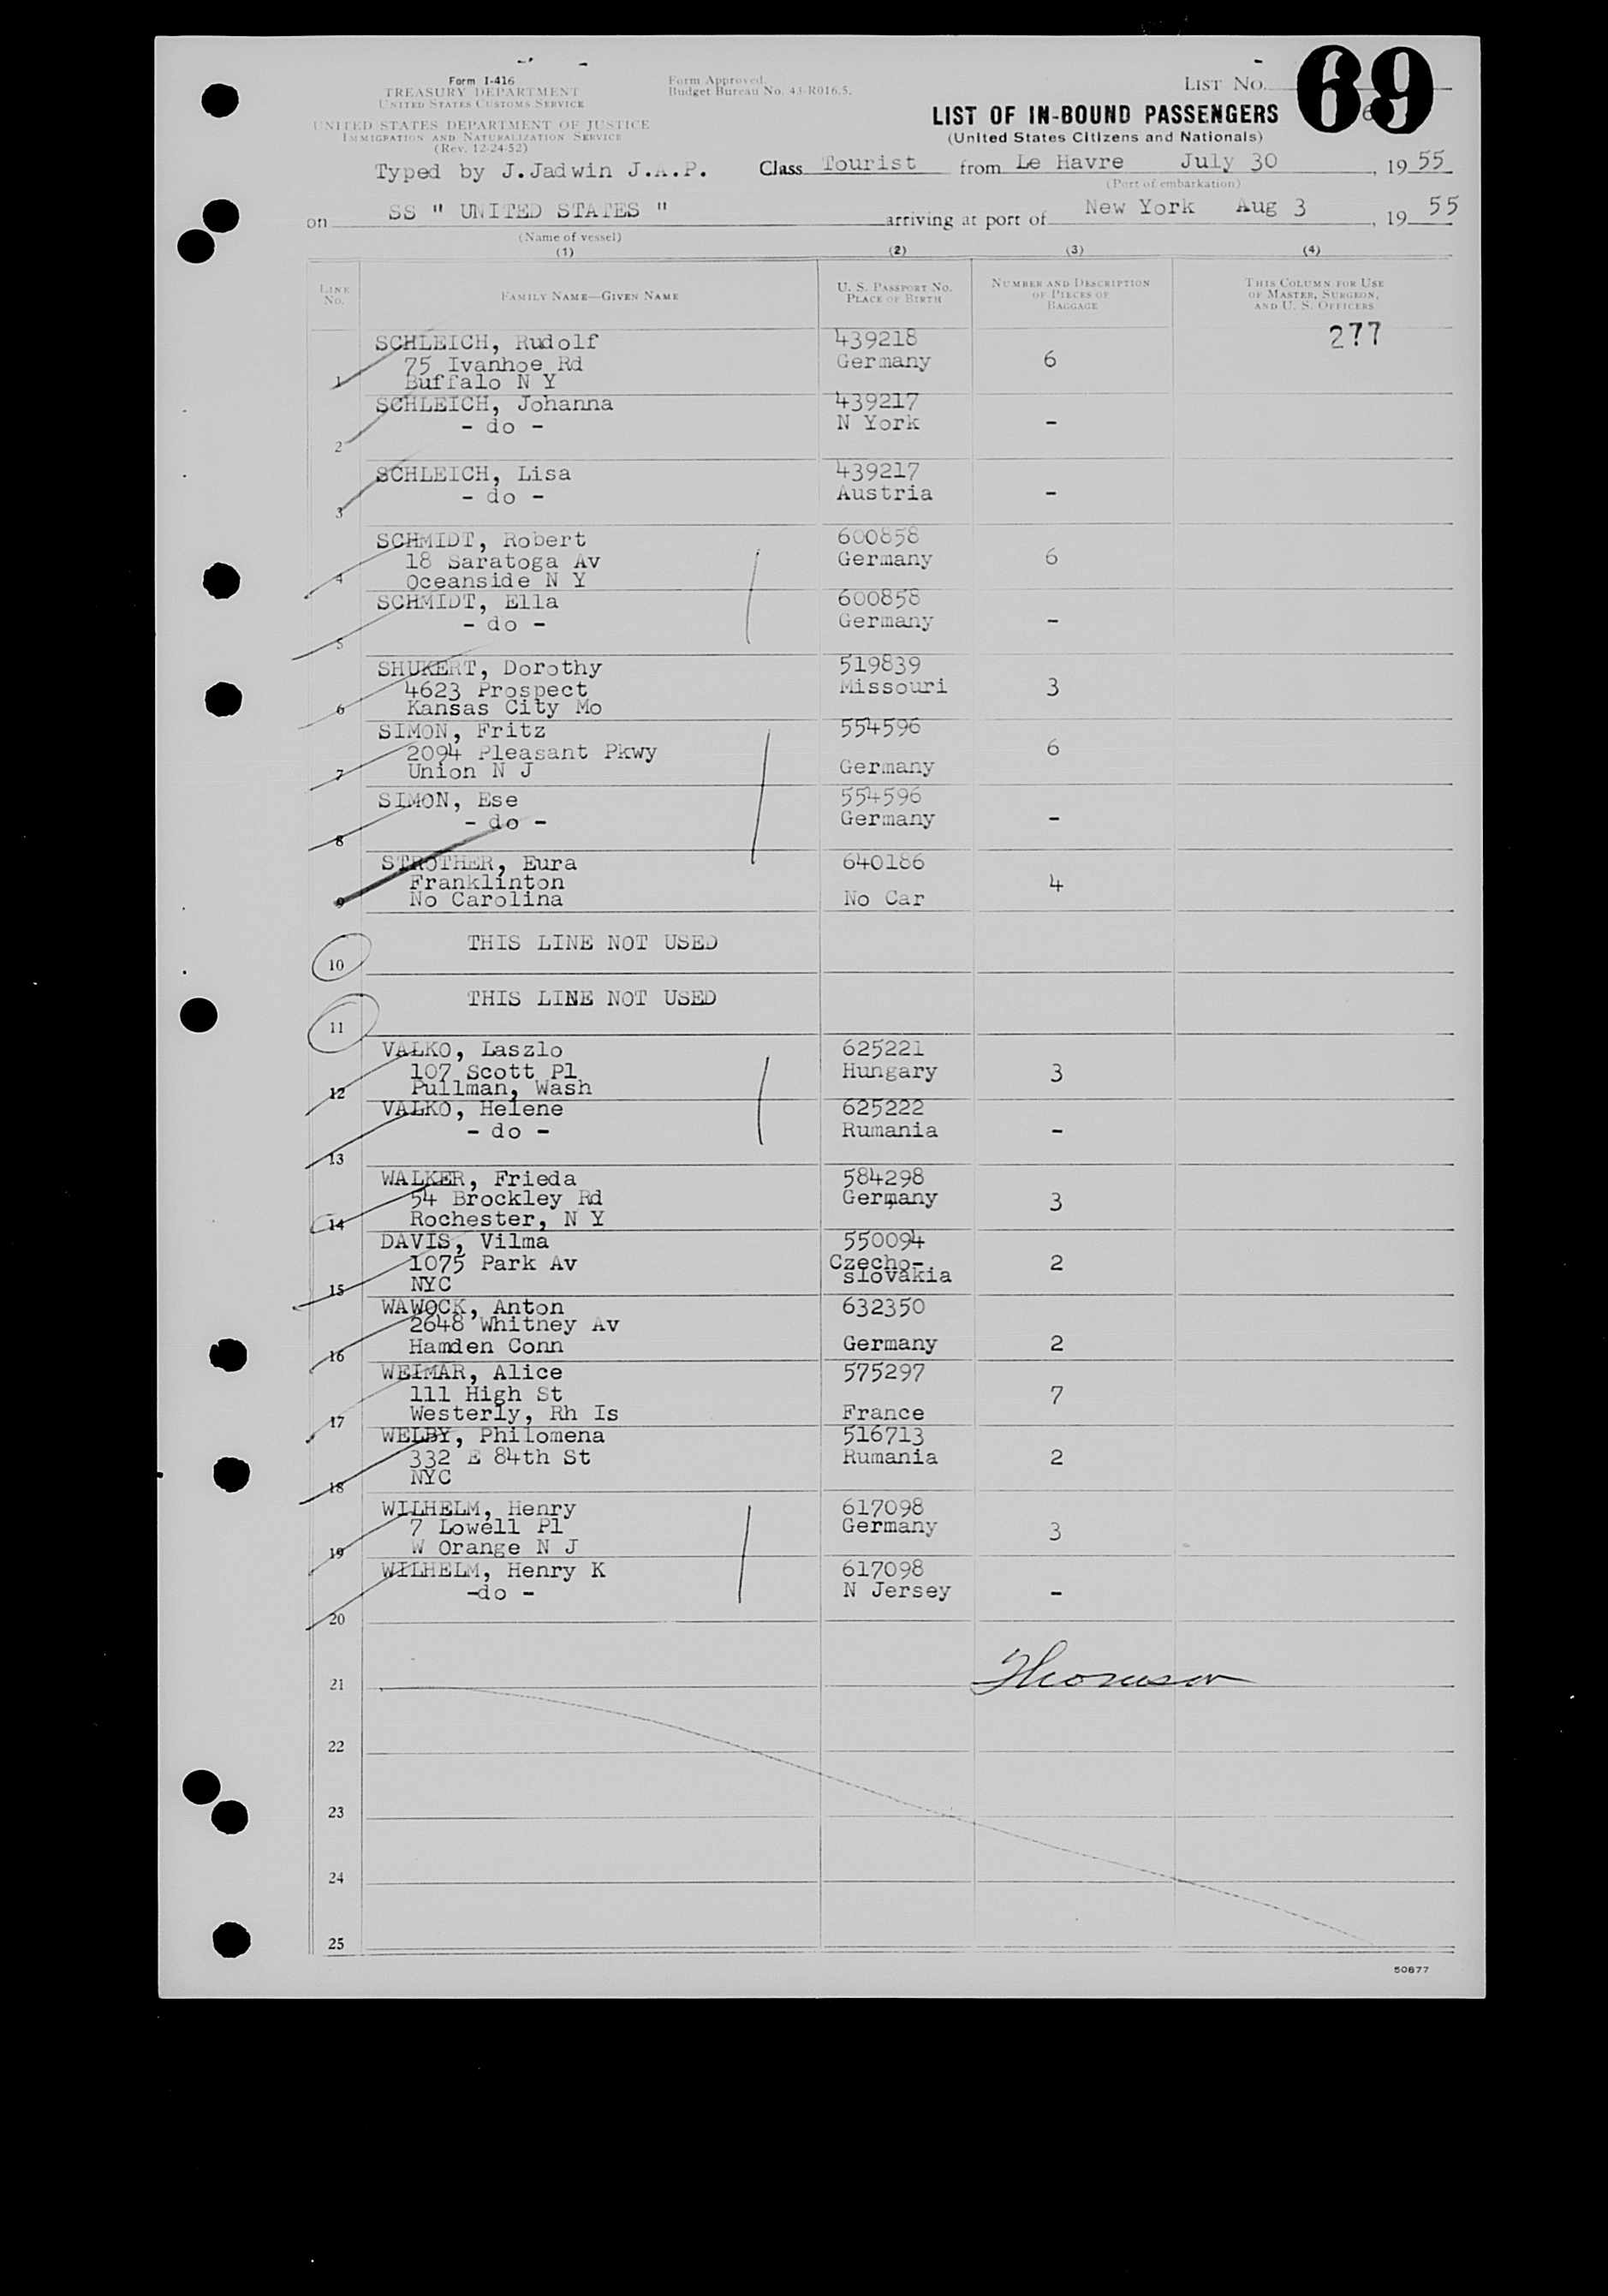 Form I-416
TREASURY DEPARTMENT
UNITED STATES CUSTOMS SERVICE
UNITED STATES DEPARTMENT OF JUSTICE
IMMIGRATION AND NATURALIZATION SERVICE
(Rev. 12-24-52)
Form Approved
Budget Bureau No. 43-R016.5.
LIST NO. 69
LIST OF IN-BOUND PASSENGERS
(United States Citizens and Nationals)
Typed by J.Jadwin J.A.P. Class Tourist from Le Havre July 30, 1955
(Port of embarkation)
on SS " UNITED STATES " arriving at port of New York Aug 3, 1955
(Name of vessel)
(1) (2) (3) (4)
LINE NO. FAMILY NAME—GIVEN NAME U. S. PASSPORT NO. PLACE OF BIRTH NUMBER AND DESCRIPTION OF PIECES OF BAGGAGE THIS COLUMN FOR USE OF MASTER, SURGEON, AND U. S. OFFICERS
277
SCHLEICH, Rudolf 439218
75 Ivanhoe Rd Germany 6
1 Buffalo N Y
SCHLEICH, Johanna 439217
- do - N York -
2
SCHLEICH, Lisa 439217
- do - Austria -
3
SCHMIDT, Robert 600858
18 Saratoga Av Germany 6
4 Oceanside N Y
SCHMIDT, Ella 600858
- do - Germany -
5
SHUKERT, Dorothy 519839
4623 Prospect Missouri 3
6 Kansas City Mo
SIMON, Fritz 554596
2094 Pleasant Pkwy 6
7 Union N J Germany
SIMON, Ese 554596
- do - Germany -
8
STROTHER, Eura 640186
Franklinton 4
9 No Carolina No Car
THIS LINE NOT USED
10
THIS LINE NOT USED
11
VALKO, Laszlo 625221
107 Scott Pl Hungary 3
12 Pullman, Wash
VALKO, Helene 625222
- do - Rumania -
13
WALKER, Frieda 584298
54 Brockley Rd Germany 3
14 Rochester, N Y
DAVIS, Vilma 550094
1075 Park Av Czecho- 2
15 NYC slovakia
WAWOCK, Anton 632350
2648 Whitney Av
16 Hamden Conn Germany 2
WEIMAR, Alice 575297
111 High St 7
17 Westerly, Rh Is France
WELBY, Philomena 516713
332 E 84th St Rumania 2
18 NYC
WILHELM, Henry 617098
7 Lowell Pl Germany 3
19 W Orange N J
WILHELM, Henry K 617098
-do - N Jersey -
20
21 Thomson
22
23
24
25
50877